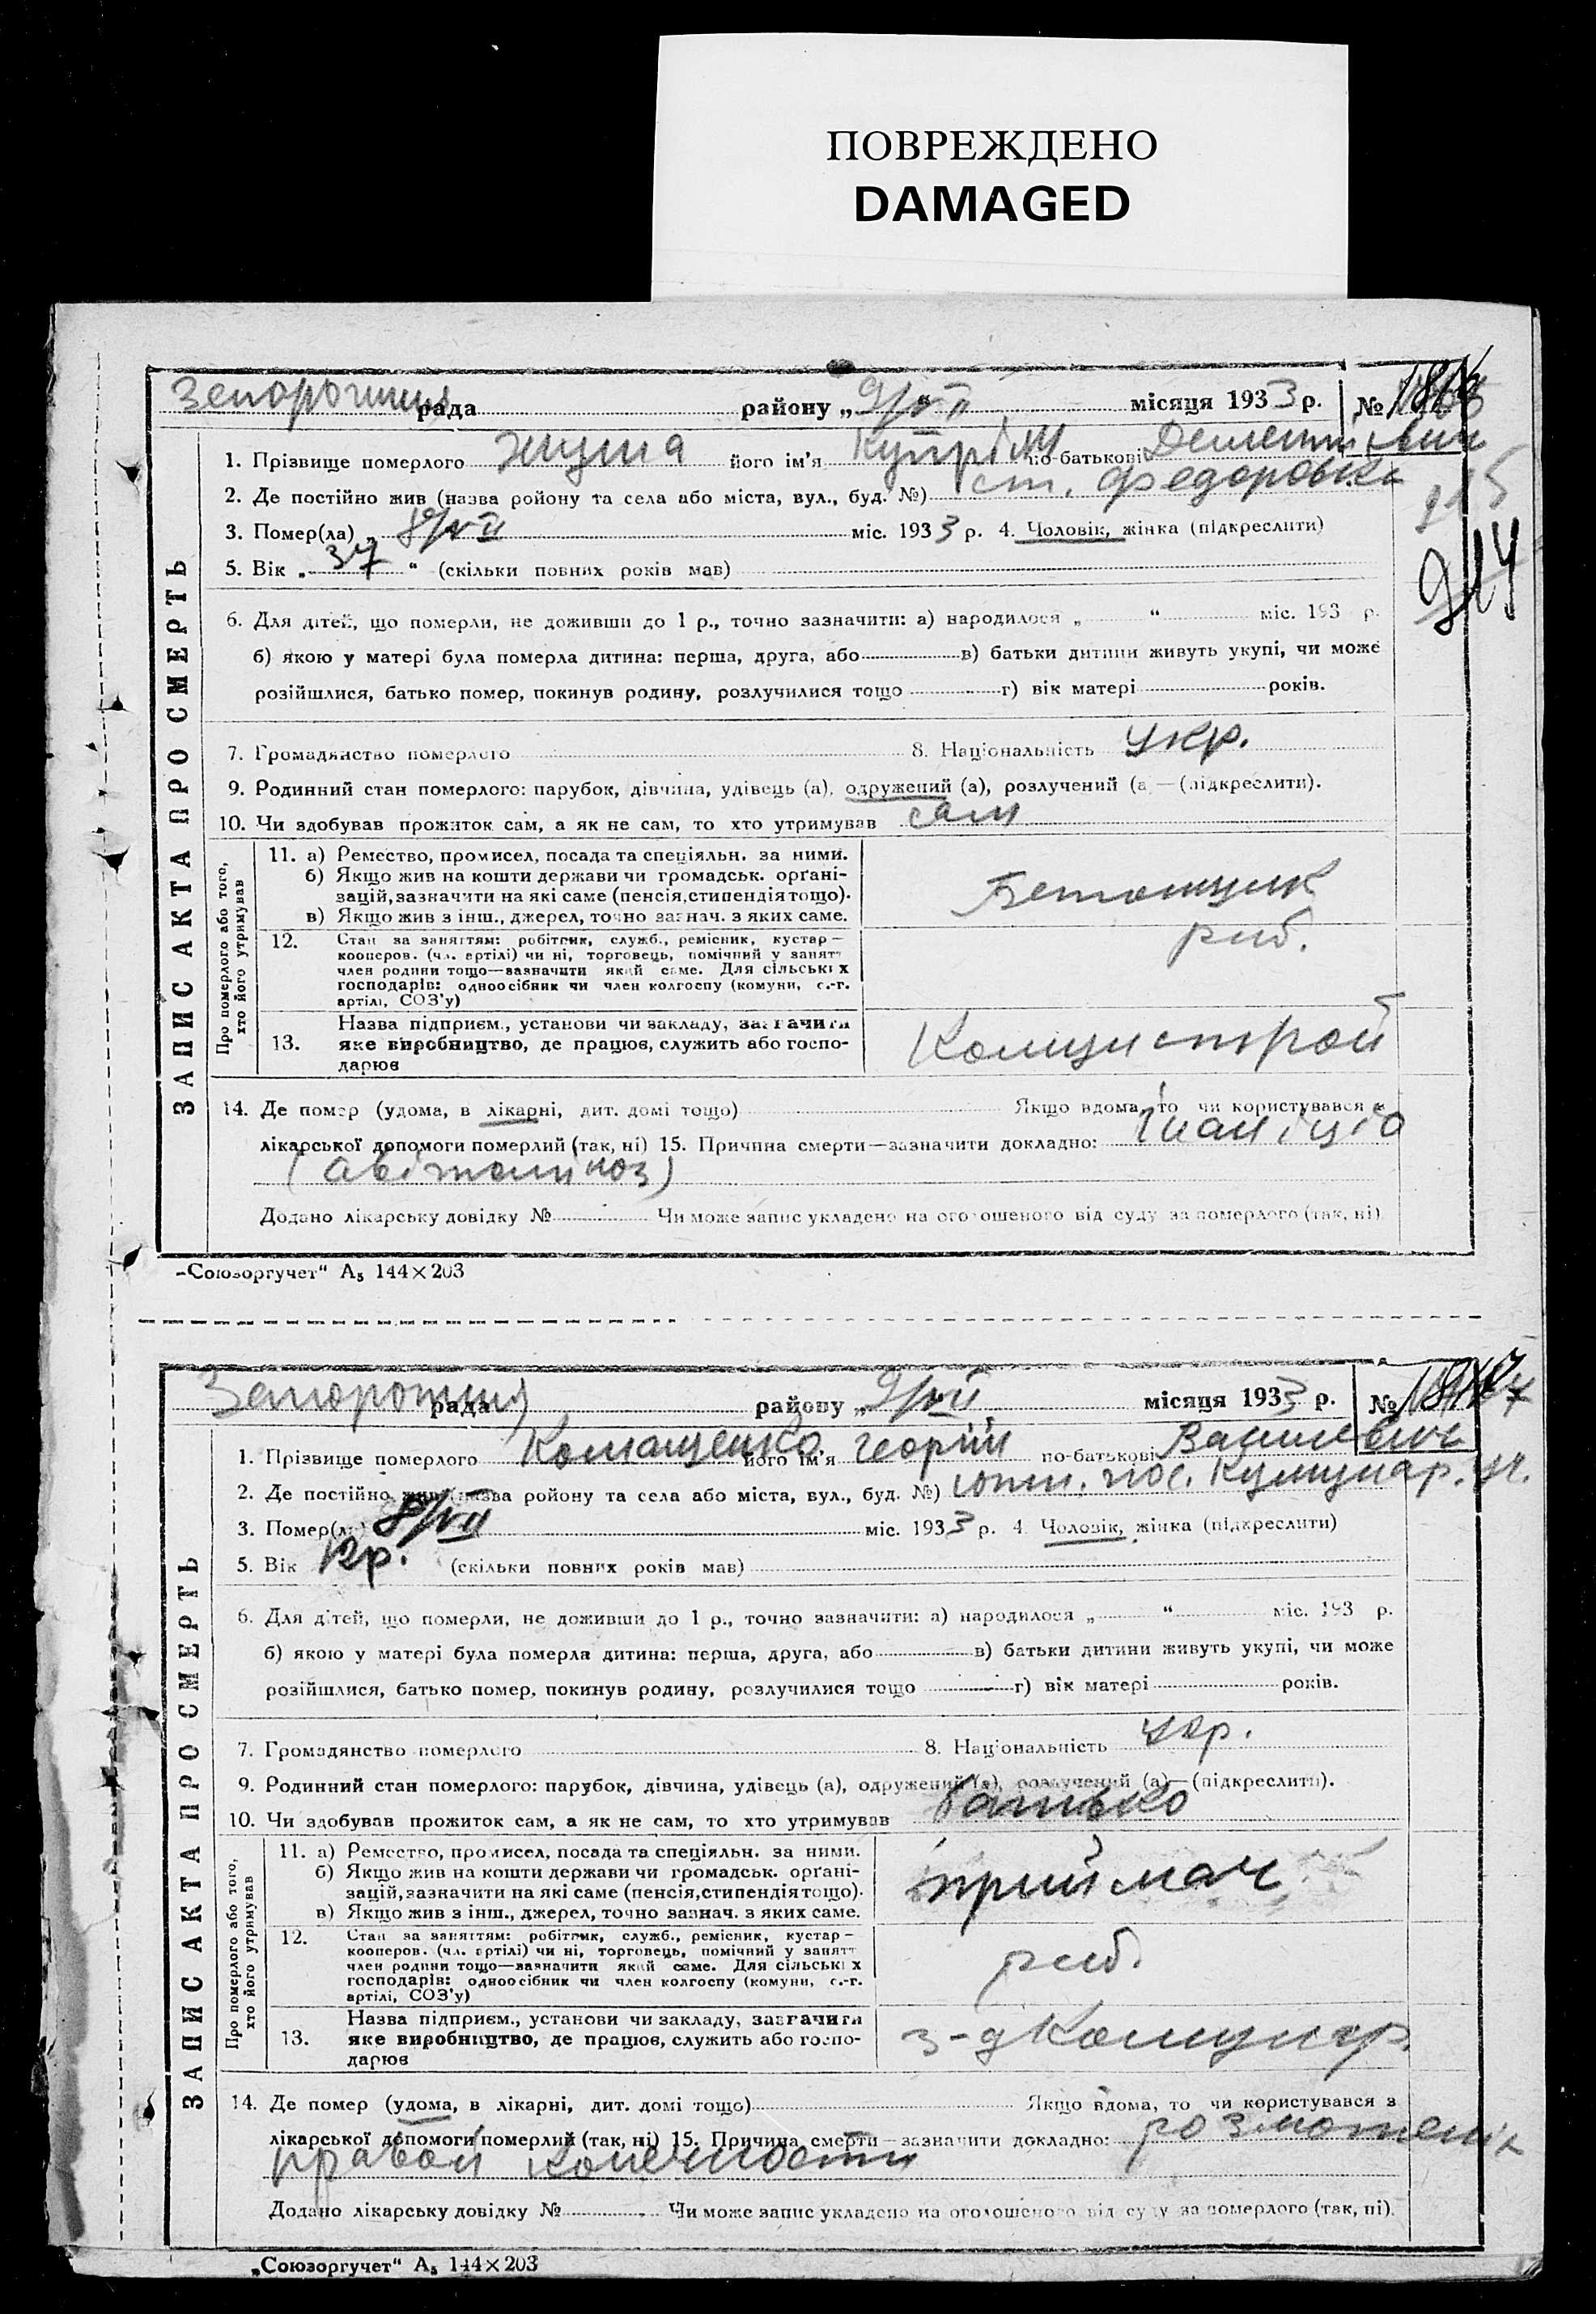 ПОВРЕЖДЕНО
DAMAGED
рада району „9/VII місяця 1933 р. №
1. Прізвище померлого його ім'я по-батькові
2. Де постійно жив (назва ройону та села або міста, вул., буд. №) ст. Федоровка
3. Помер(ла) „ 8/VII міс. 1933 р. 4. Чоловік, жінка (підкреслити)
5. Вік „ 37 “ (скільки повних років мав)
6. Для дітей, що померли, не доживши до 1 р., точно зазначити: а) народилося „ “ міс. 193 р.
б) якою у матері була померла дитина: перша, друга, або в) батьки дитини живуть укупі, чи може
розійшлися, батько помер, покинув родину, розлучилися тощо г) вік матері років.
7. Громадянство померлого 8. Національність укр.
9. Родинний стан померлого: парубок, дівчина, удівець (а), одружений (а), розлучений (а —(підкреслити).
10. Чи здобував прожиток сам, а як не сам, то хто утримував сам
11. а) Ремество, промисел, посада та спеціяльн. за ними.
б) Якщо жив на кошти держави чи громадськ. орґані-
зацій, зазначити на які саме (пенсія, стипендія тощо).
в) Якщо жив з інш., джерел, точно зазнач. з яких саме.
Бетонщик
12. Стан за заняттям: робітник, служб., ремісник, кустар—
кооперов. (чл. артілі) чи ні, торговець, помічний у занятт
член родини тощо—зазначити який саме. Для сільських
господарів: одноосібник чи член колгоспу (комуни, с.-г.
артілі, СОЗ'у)
роб.
Назва підприєм., установи чи закладу, зазначити
13. яке виробництво, де працюв, служить або госпо-
дарюв
Про померлого або того,
хто його утримував
ЗАПИС АКТА ПРО СМЕРТЬ
14. Де помер (удома, в лікарні, дит. домі тощо) Якщо вдома, то чи користувався з
лікарської допомоги померлий (так, ні) 15. Причина смерти—зазначити докладно:
(авітаміноз)
Додано лікарську довідку № Чи може запис укладено на оголошеного від суду за померлого (так, ні)
„Союзоргучет“ А₅ 144×203
рада району „9/VII місяця 1933 р. №
1. Прізвище померлого Комащенко його ім'я Георгій по-батькові Васильевич
2. Де постійно жив (назва ройону та села або міста, вул., буд. №)
3. Помер(ла) 8/VII міс. 1933 р. 4. Чоловік, жінка (підкреслити)
5. Вік 12р. (скільки повних років мав)
6. Для дітей, що померли, не доживши до 1 р., точно зазначити: а) народилося „ “ міс. 193 р.
б) якою у матері була померла дитина: перша, друга, або в) батьки дитини живуть укупі, чи може
розійшлися, батько помер, покинув родину, розлучилися тощо г) вік матері років.
7. Громадянство померлого 8. Національність укр.
9. Родинний стан померлого: парубок, дівчина, удівець (а), одружений (а), розлучений (а)—(підкреслити).
10. Чи здобував прожиток сам, а як не сам, то хто утримував батько
11. а) Ремество, промисел, посада та спеціяльн. за ними.
б) Якщо жив на кошти держави чи громадськ. орґані-
зацій, зазначити на які саме (пенсія, стипендія тощо).
в) Якщо жив з інш., джерел, точно зазнач. з яких саме.
приймач
12. Стан за заняттям: робітник, служб., ремісник, кустар—
кооперов. (чл. артілі) чи ні, торговець, помічний у занятт
член родини тощо—зазначити який саме. Для сільських
господарів: одноосібник чи член колгоспу (комуни, с.-г.
артілі, СОЗ'у)
роб.
Назва підприєм., установи чи закладу, зазначити
13. яке виробництво, де працюв, служить або госпо-
дарюв
з-д Комунар.
Про померлого або того,
хто його утримував
ЗАПИС АКТА ПРО СМЕРТЬ
14. Де помер (удома, в лікарні, дит. домі тощо) Якщо вдома, то чи користувався з
лікарської допомоги померлий (так, ні) 15. Причина смерти—зазначити докладно:
правой конечности
Додано лікарську довідку № Чи може запис укладено на оголошеного від суду за померлого (так, ні).
„Союзоргучет“ А₅ 144×203